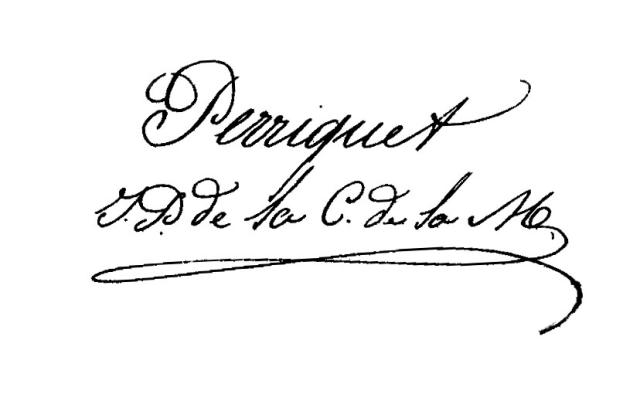 Perriquet
S.D. de la C. de la M